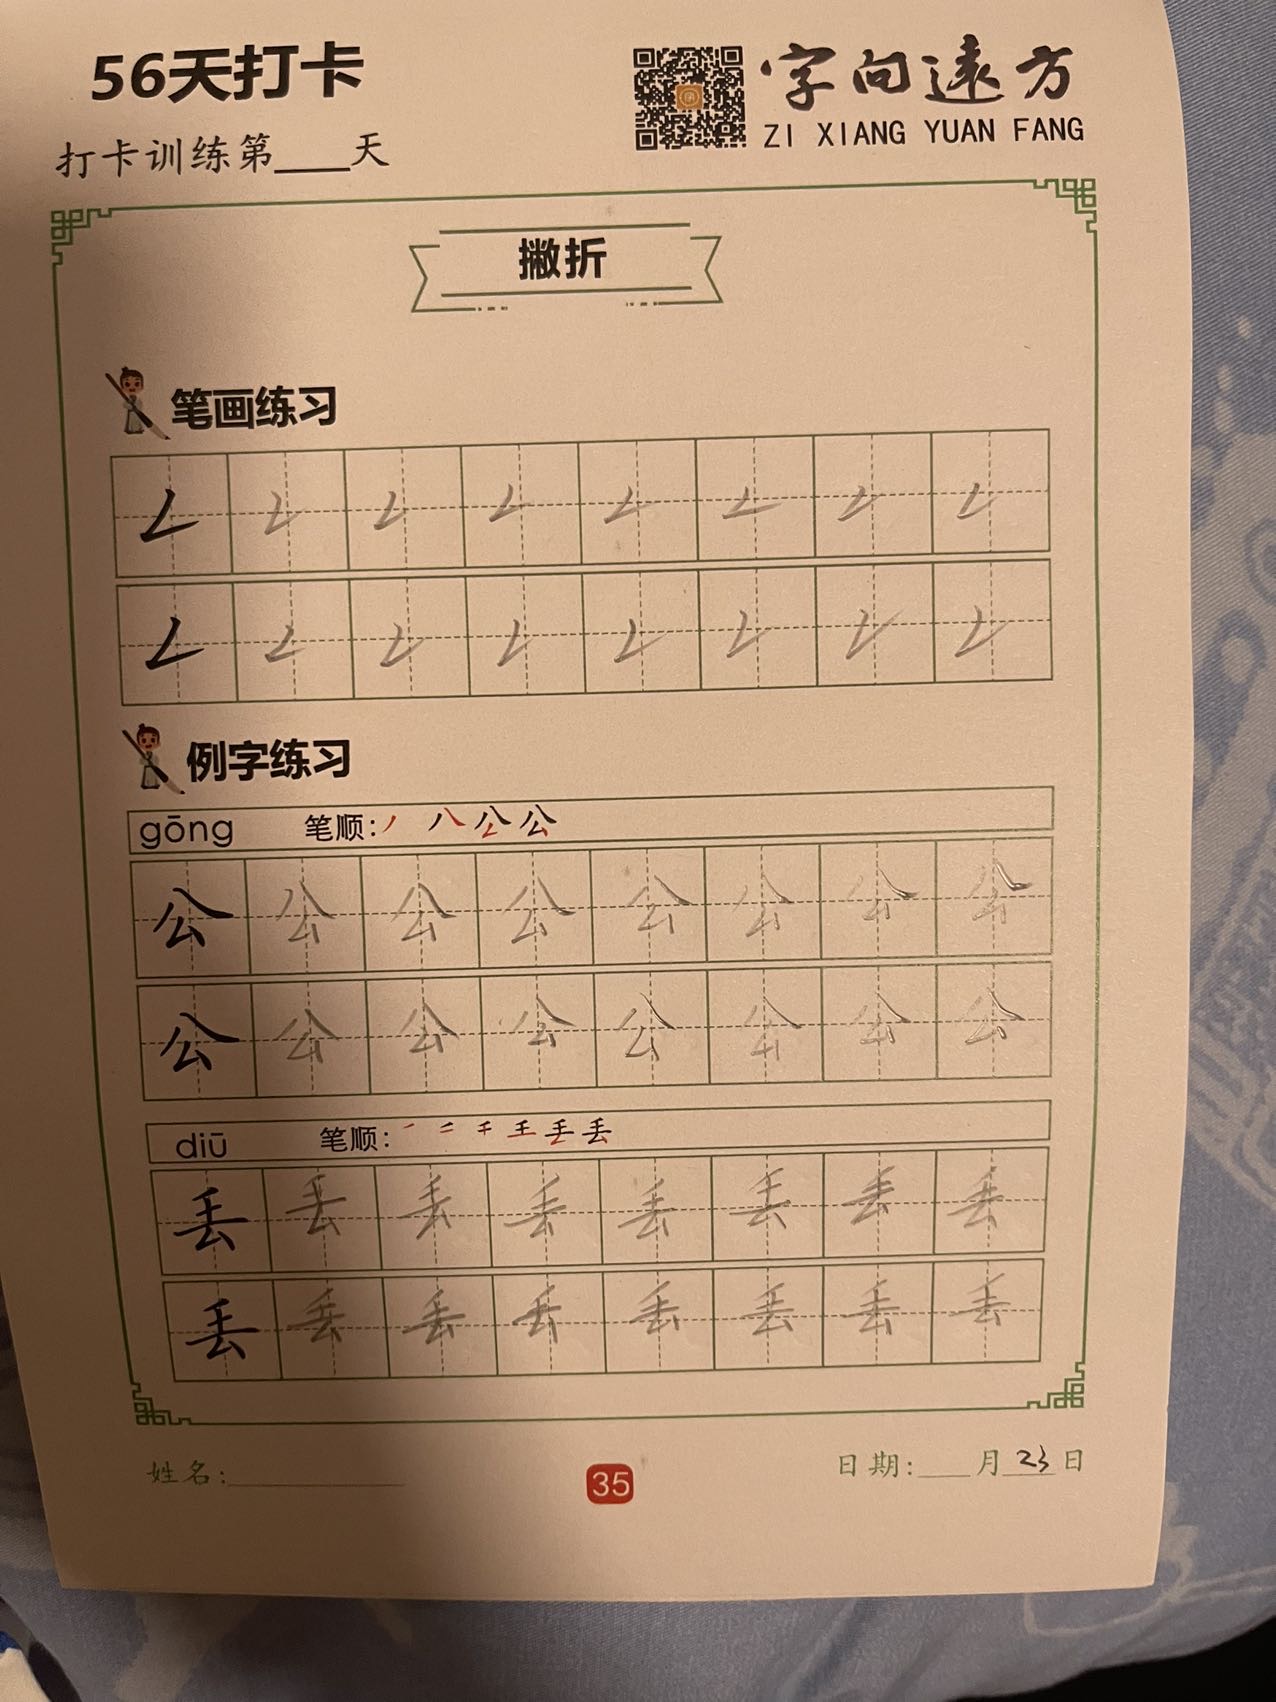 56天打卡
字向遠方
ZI XIANG YUAN FANG
打卡训练第____天
撇折
笔画练习
𠃋 𠃋 𠃋 𠃋 𠃋 𠃋 𠃋 𠃋
𠃋 𠃋 𠃋 𠃋 𠃋 𠃋 𠃋 𠃋
例字练习
gōng 笔顺:
公 公 公 公 公 公 公 公
公 公 公 公 公 公 公 公
diū 笔顺:
丢 丢 丢 丢 丢 丢 丢 丢
丢 丢 丢 丢 丢 丢 丢 丢
姓名:________ 35 日期:___月23日